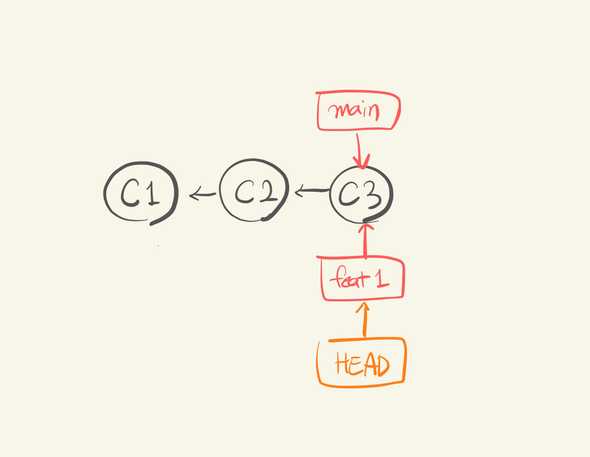 main
C1
C2
C3
feat 1
HEAD